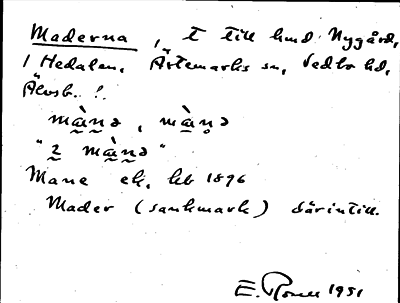 Maderna, t till hmd Nygård,
i Hedalen, Ärtemarks sn, Vedbo hd,
Älvsb. l.
mà̰nə, mà̰n̥ə
"2 mà̰nə"
Mane ek. kb 1896
Mader (sankmark) därintill.
E. 1951